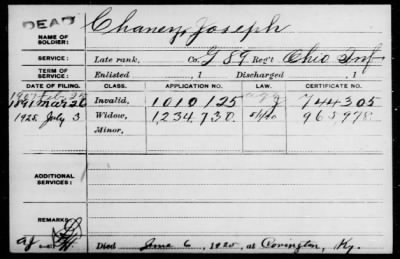 DEAD
NAME OF SOLDIER: Chaney, Joseph
SERVICE: Late rank, Co. G 89 Reg't Ohio Inf
TERM OF SERVICE: Enlisted , 1 Discharged , 1
DATE OF FILING. CLASS. APPLICATION NO. LAW. CERTIFICATE NO.
1891 Mar 26 Invalid, 1010125 744305
1925 July 3 Widow, 1,234,730 965978
Minor,
ADDITIONAL SERVICES:
REMARKS:
Died June 6, 1925, at Covington, Ky.